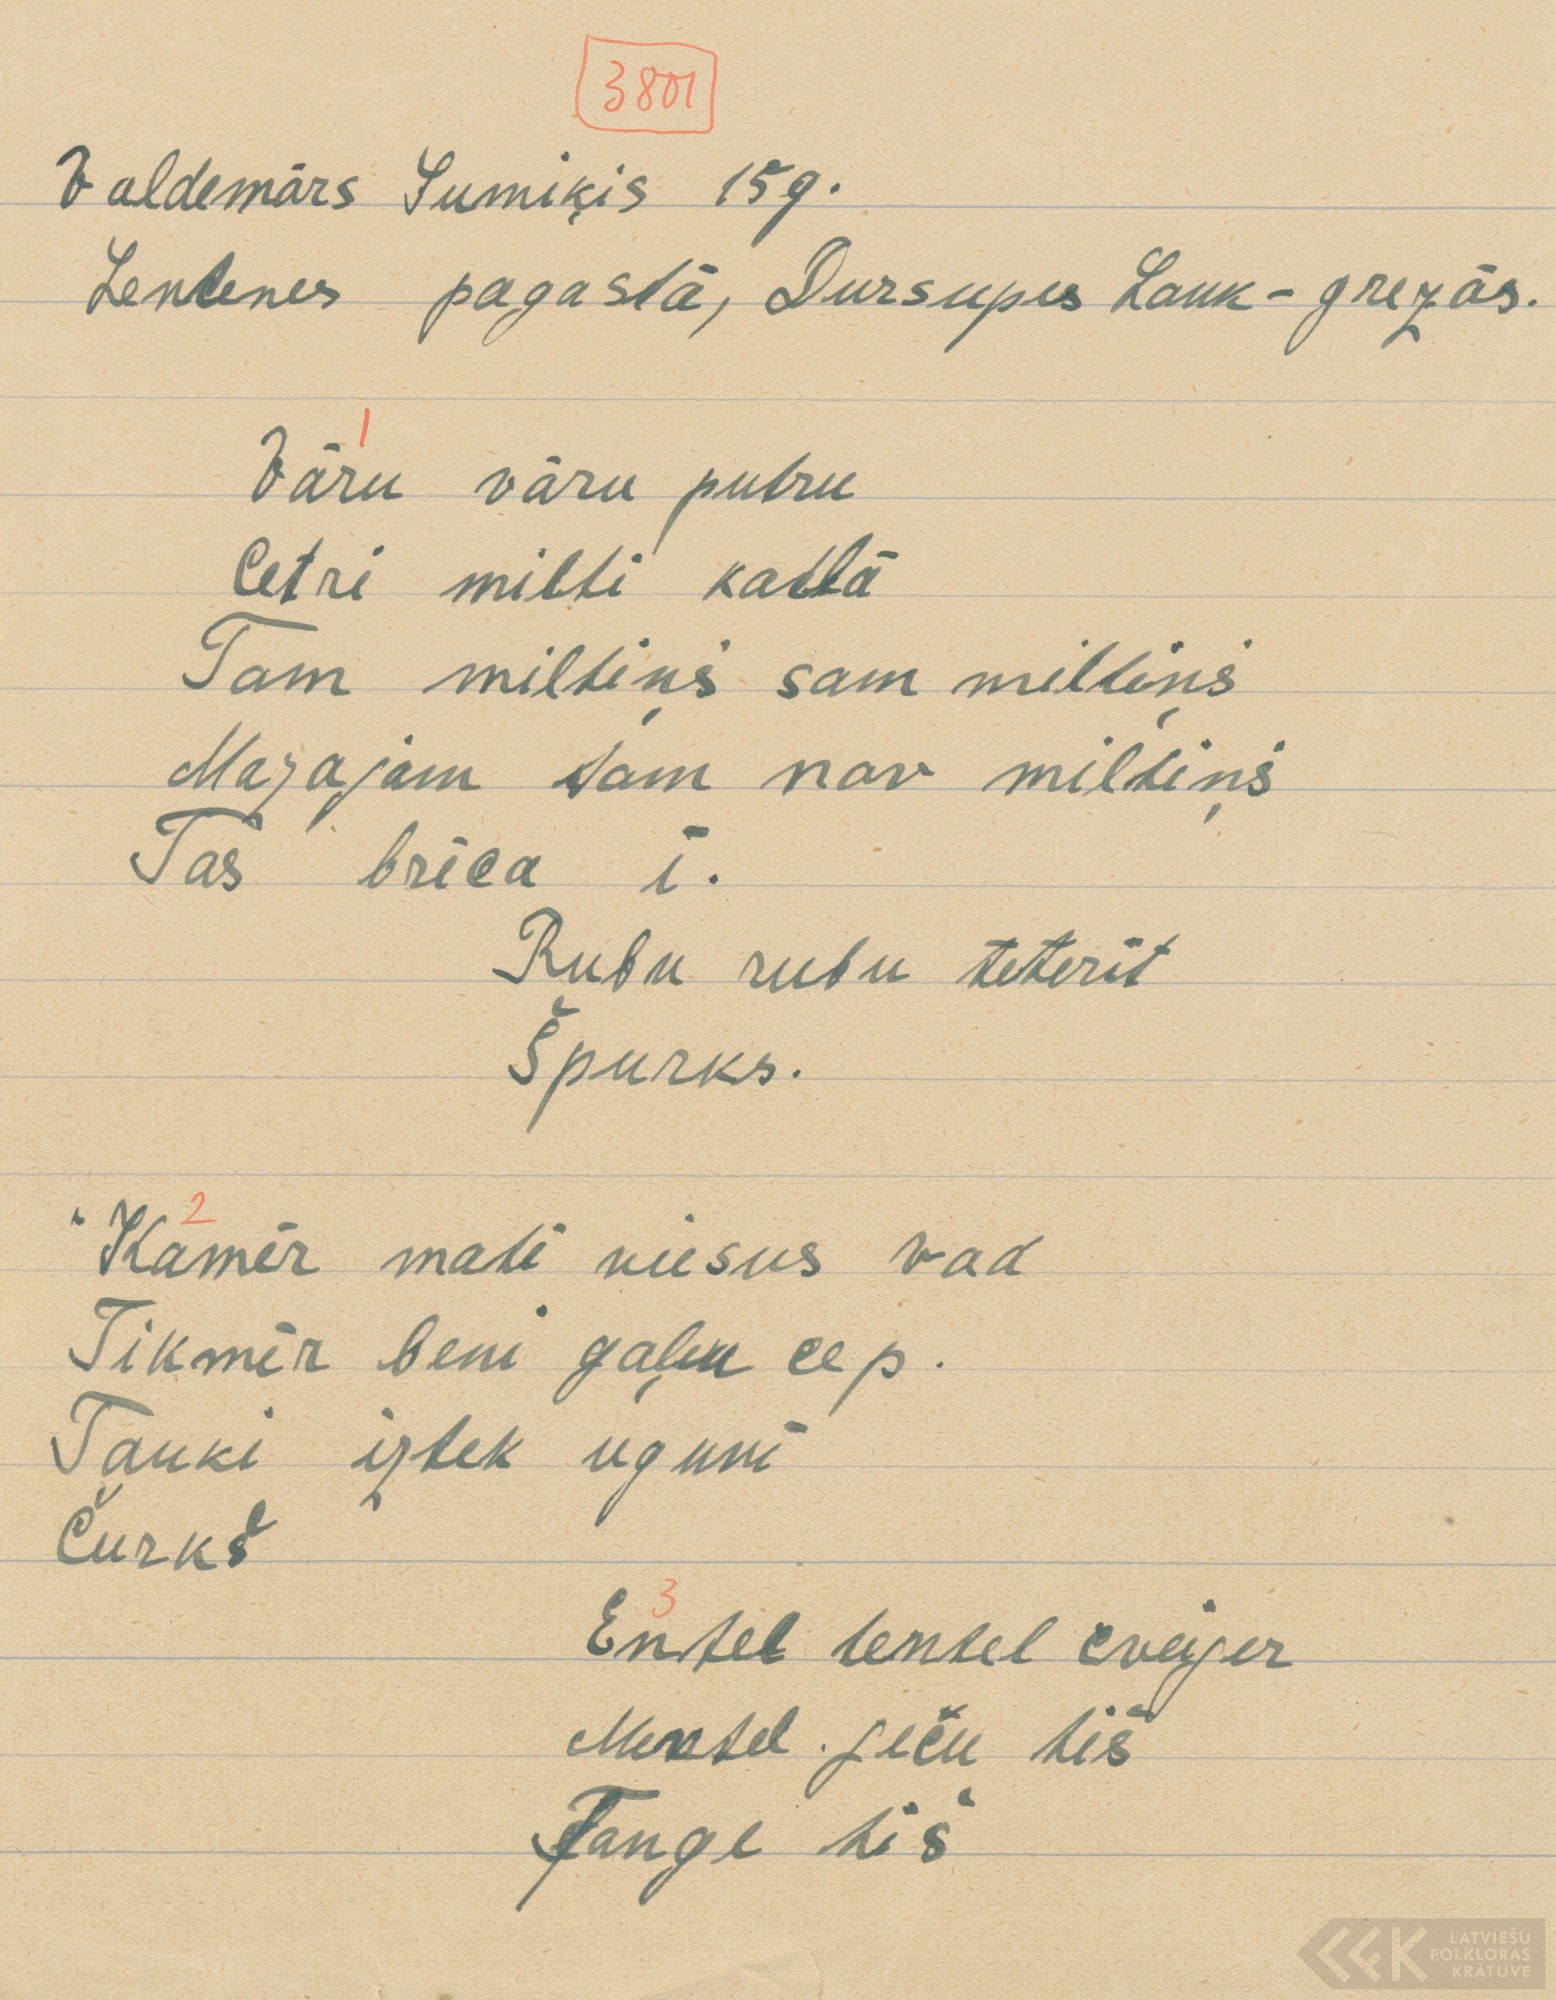 3801
Valdemārs Sumiķis 15g.
Lentenes pagastā, Dursupes Lauk-grezās.
1
Vāru vāru putru
Cetri milti katlā
Tam miltiņš sam miltiņš
Mazajam tam nav miltiņš
Tas brīca ī.
Rubu rubu teterīt
Špurks.
2
Kamēr mati viesus vad
Tikmēr beni gaļu cep.
Tauki iztek ugunī
Čurkš
3
Entel tentel cveijer
Mentel ječu tiš
Fange tiš
LATVIEŠU
FOLKLORAS
KRĀTUVE